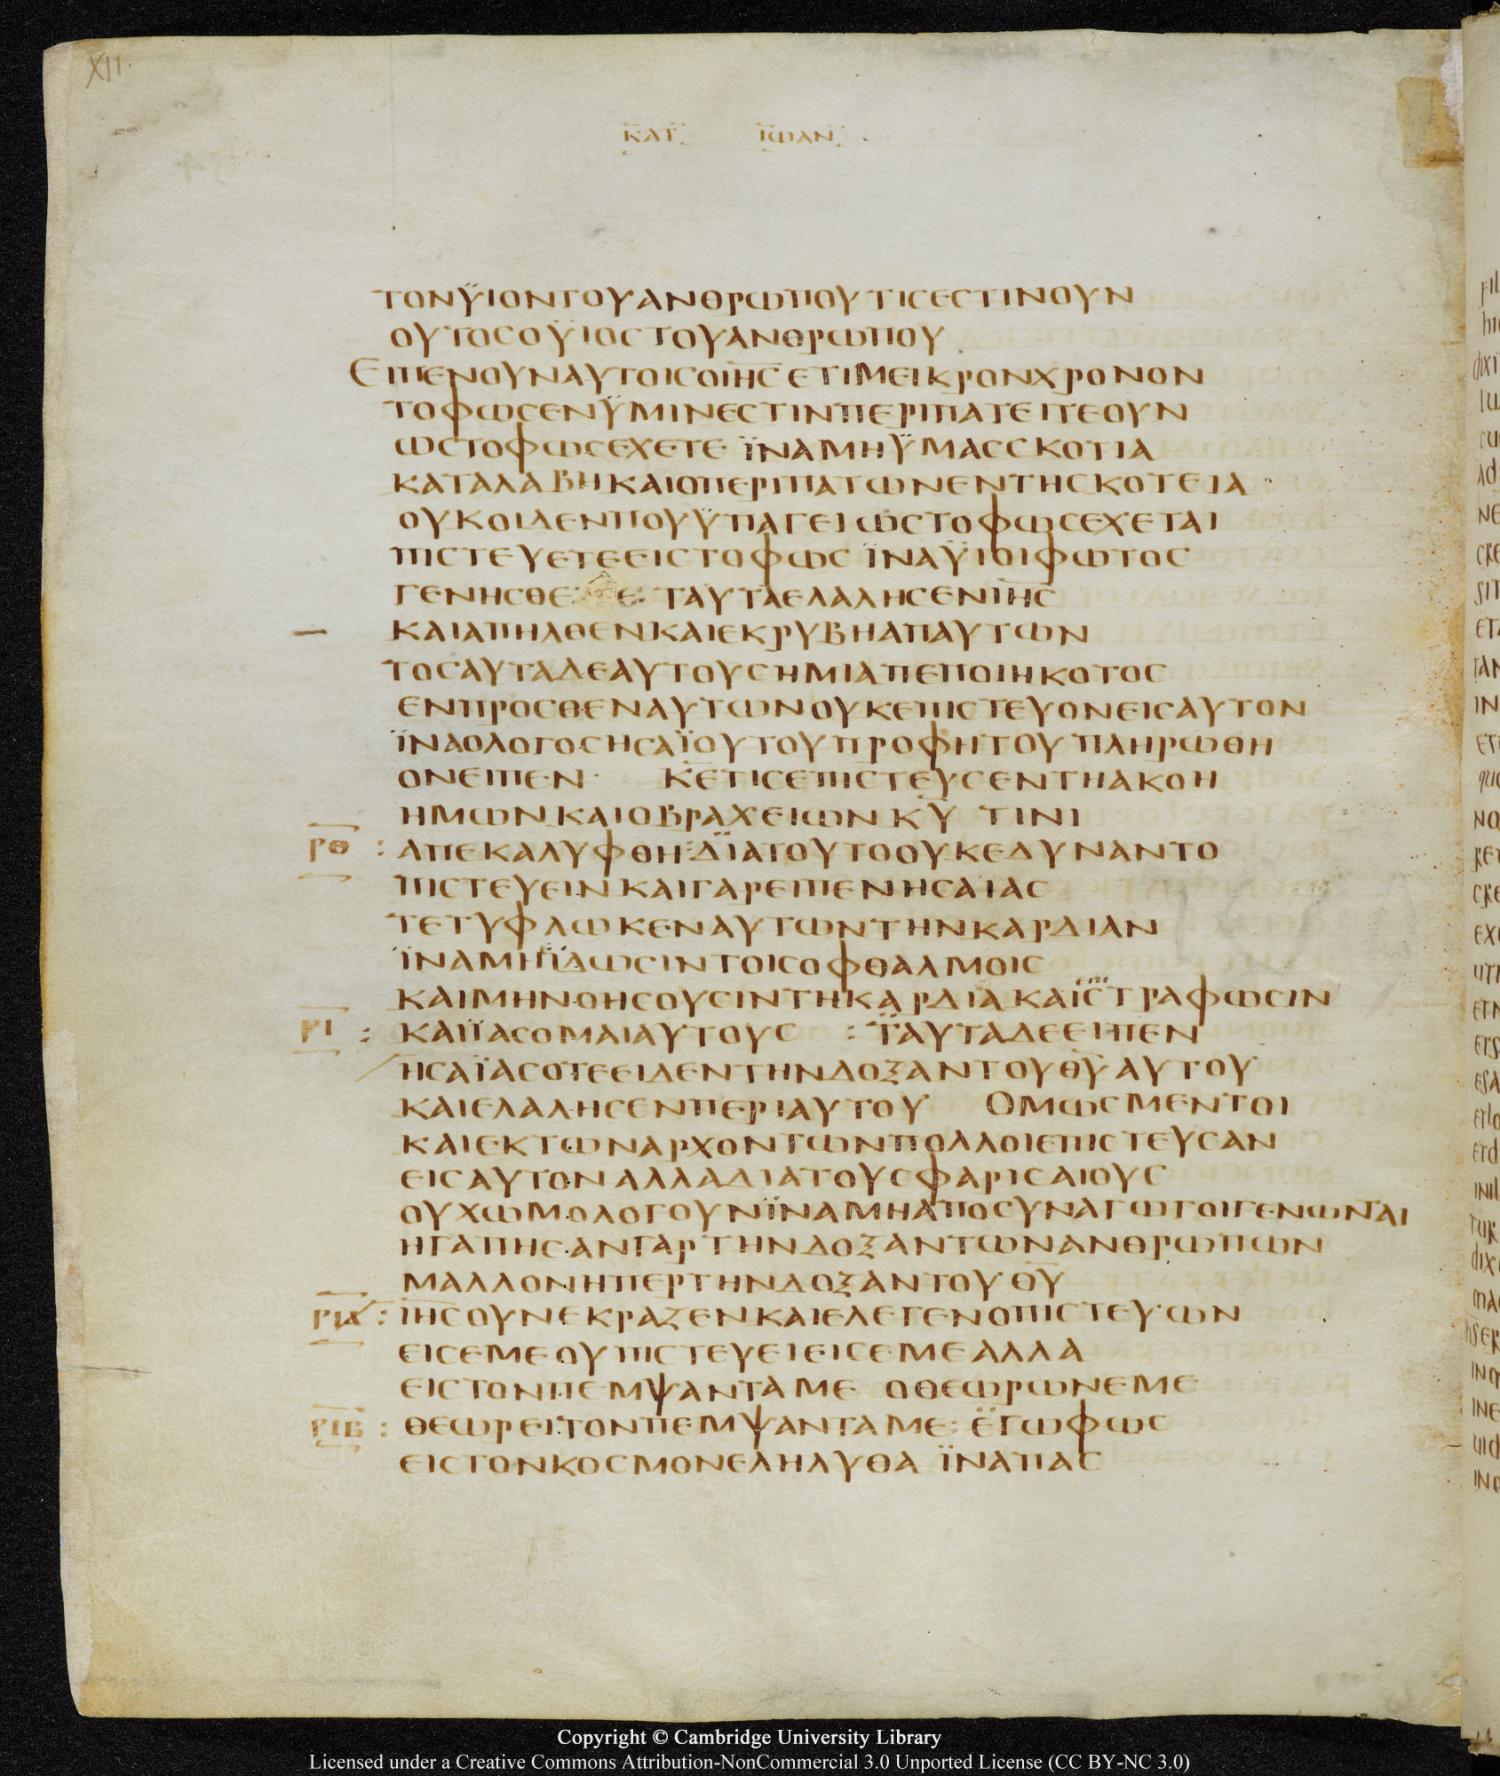 XII
ΚΑΤ ΙΩΑΝ
ΤΟΝΫΙΟΝΤΟΥΑΝΘΡΩΠΟΥΤΙCΕCΤΙΝΟΥΝ
ΟΥΤΟCΟΫΙΟCΤΟΥΑΝΘΡΩΠΟΥ
ΕΙΠΕΝΟΥΝΑΥΤΟΙCΟΙΗC ΕΤΙΜΕΙΚΡΟΝΧΡΟΝΟΝ
ΤΟΦΩCΕΝΫΜΙΝΕCΤΙΝΠΕΡΙΠΑΤΕΙΤΕΟΥΝ
ΩCΤΟΦΩCΕΧΕΤΕ ΪΝΑΜΗΫΜΑCCΚΟΤΙΑ
ΚΑΤΑΛΑΒΗΚΑΙΟΠΕΡΙΠΑΤΩΝΕΝΤΗCΚΟΤΕΙΑ
ΟΥΚΟΙΔΕΝΠΟΥΫΠΑΓΕΙΩCΤΟΦΩCΕΧΕΤΑΙ
ΠΙCΤΕΥΕΤΕΕΙCΤΟΦΩC ΪΝΑΫΙΟΙΦΩΤΟC
ΓΕΝΗCΘΕ Ε ΤΑΥΤΑΕΛΑΛΗCΕΝΙΗC
ΚΑΙΑΠΗΛΘΕΝΚΑΙΕΚΡΥΒΗΑΠΑΥΤΩΝ
ΤΟCΑΥΤΑΔΕΑΥΤΟΥCΗΜΙΑΠΕΠΟΙΗΚΟΤΟC
ΕΝΠΡΟCΘΕΝΑΥΤΩΝΟΥΚΕΠΙCΤΕΥΟΝΕΙCΑΥΤΟΝ
ΪΝΑΟΛΟΓΟCΗCΑΪΟΥΤΟΥΠΡΟΦΗΤΟΥΠΛΗΡΩΘΗ
ΟΝΕΙΠΕΝ· ΚΕΤΙCΕΠΙCΤΕΥCΕΝΤΗΑΚΟΗ
ΗΜΩΝΚΑΙΟΒΡΑΧΕΙΩΝ ΚΥ ΤΙΝΙ
ΡΘ : ΑΠΕΚΑΛΥΦΘΗ:ΔΪΑΤΟΥΤΟΟΥΚΕΔΥΝΑΝΤΟ
ΠΙCΤΕΥΕΙΝΚΑΙΓΑΡΕΙΠΕΝΗCΑΙΑC
ΤΕΤΥΦΛΩΚΕΝΑΥΤΩΝΤΗΝΚΑΡΔΙΑΝ
ΪΝΑΜΗΪΔΩCΙΝΤΟΙCΟΦΘΑΛΜΟΙC
ΚΑΙΜΗΝΟΗCΟΥCΙΝΤΗΚΑΡΔΙΑΚΑΙCΤΡΑΦΩCΙΝ
ΡΙ : ΚΑΙΪΑCΟΜΑΙΑΥΤΟΥC : ΤΑΥΤΑΔΕΕΙΠΕΝ
ΗCΑΪΑCΟΤΕΕΙΔΕΝΤΗΝΔΟΞΑΝΤΟΥΘΥΑΥΤΟΥ
ΚΑΙΕΛΑΛΗCΕΝΠΕΡΙΑΥΤΟΥ ΟΜΩCΜΕΝΤΟΙ
ΚΑΙΕΚΤΩΝΑΡΧΟΝΤΩΝΠΟΛΛΟΙΕΠΙCΤΕΥCΑΝ
ΕΙCΑΥΤΟΝΑΛΛΑΔΙΑΤΟΥCΦΑΡΙCΑΙΟΥC
ΟΥΧΩΜΟΛΟΓΟΥΝΪΝΑΜΗΑΠΟCΥΝΑΓΩΓΟΙΓΕΝΩΝΤΑΙ
ΗΓΑΠΗCΑΝΓΑΡΤΗΝΔΟΞΑΝΤΩΝΑΝΘΡΩΠΩΝ
ΜΑΛΛΟΝΗΠΕΡΤΗΝΔΟΞΑΝΤΟΥΘΥ
ΡΙΑ : ΙΗCΟΥΝΕΚΡΑΖΕΝΚΑΙΕΛΕΓΕΝΟΠΙCΤΕΥΩΝ
ΕΙCΕΜΕΟΥΠΙCΤΕΥΕΙΕΙCΕΜΕΑΛΛΑ
ΕΙCΤΟΝΠΕΜΨΑΝΤΑΜΕ ΟΘΕΩΡΩΝΕΜΕ
ΡΙΒ : ΘΕΩΡΕΙΤΟΝΠΕΜΨΑΝΤΑΜΕ: ΕΓΩΦΩC
ΕΙCΤΟΝΚΟCΜΟΝΕΛΗΛΥΘΑ ΪΝΑΠΑC
Copyright © Cambridge University Library
Licensed under a Creative Commons Attribution-NonCommercial 3.0 Unported License (CC BY-NC 3.0)